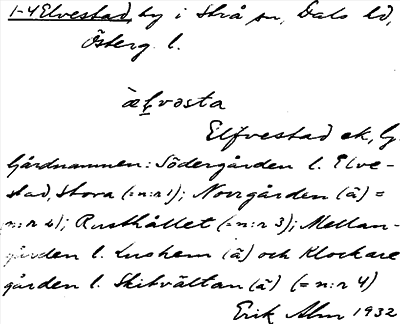 1-4 Elvestad, by i Strå sn, Dals hd,
Österg. l.
æʃvəsta
Elfvestad ek, G.
Gårdnamnen: Södergården l. Elve-
stad, Stora (=n:r 1); Norrgården (ä) =
n:r 2); Rusthållet (=n:r 3); Mellan-
gården l. Lushem (ä) och Klockare
gården l. Skitvältan (ä) (=n:r 4)
Erik Alm 1932